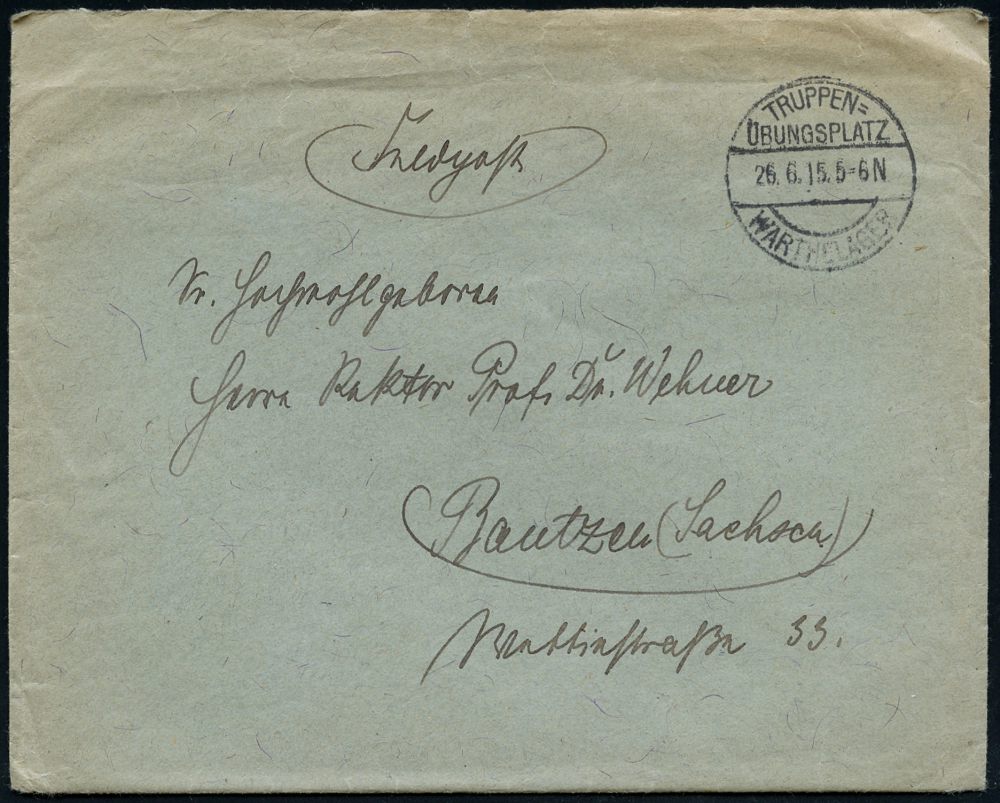 Feldpost
TRUPPEN=
ÜBUNGSPLATZ
26.6.15.5-6N
WARTHELAGER
Sr. Hochwohlgeboren
Herrn Rektor Prof. Dr. Wehner
Bautzen (Sachsen)
Wettinstraße 33.